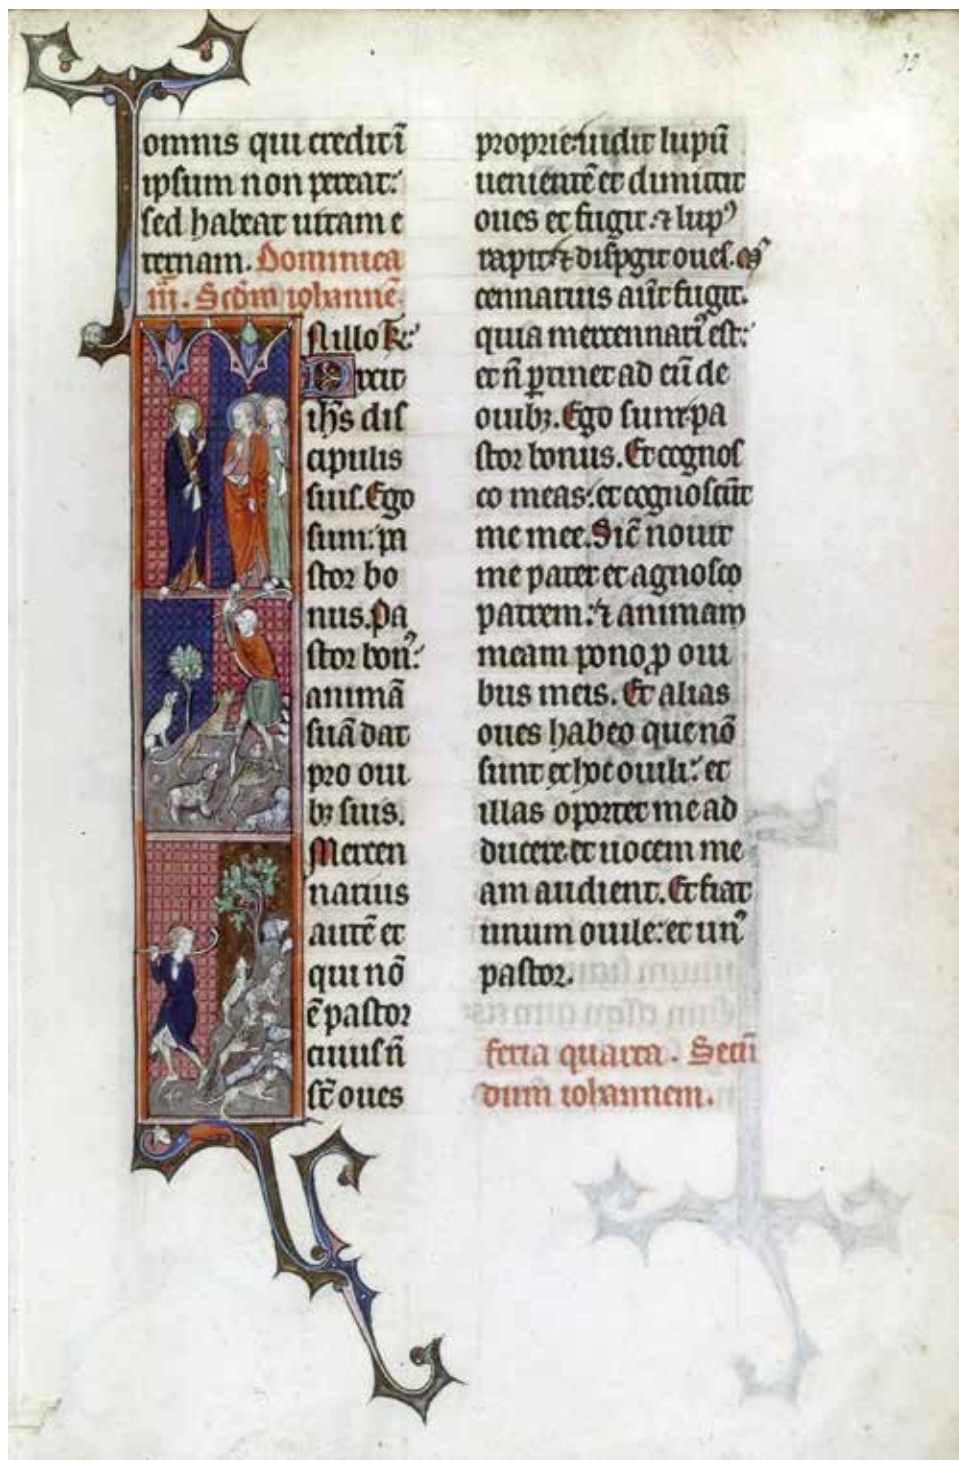 omnis qui credit ĩ
ipsum non pereat:
sed habeat uitam e
ternam. Dominica
iij. Scd̃m iohannẽ.
N illo t̃:
Dixit
ih̃s dis
cipulis
suis. Ego
sum: pa
stor bo
nus. Pa
stor bonꝰ:
animã
suã dat
pro oui
bꝫ suis.
Mercen
narius
autẽ et
qui nõ
ẽ pastor
cuius ñ
st̃ oues
proprie: uidit lupũ
uenientẽ et dimittit
oues et fugit. ⁊ lupꝰ
rapit: ⁊ dispgit oues.
cennarius aũt fugit.
quia mercennariꝰ est:
et ñ ꝑtinet ad eũ de
ouibꝫ. Ego sum: pa
stor bonus. Et cognos
co meas: et cognoscũt
me mee. Sic̃ nouit
me pater et agnosco
patrem: ⁊ animam
meam pono ꝓ oui
bus meis. Et alias
oues habeo que nõ
sunt ex hoc ouili: et
illas oportet me ad
ducere. et uocem me
am audient. Et fiat
unum ouile: et unꝰ
pastor.
feria quarta. Secũ
dum iohannem.